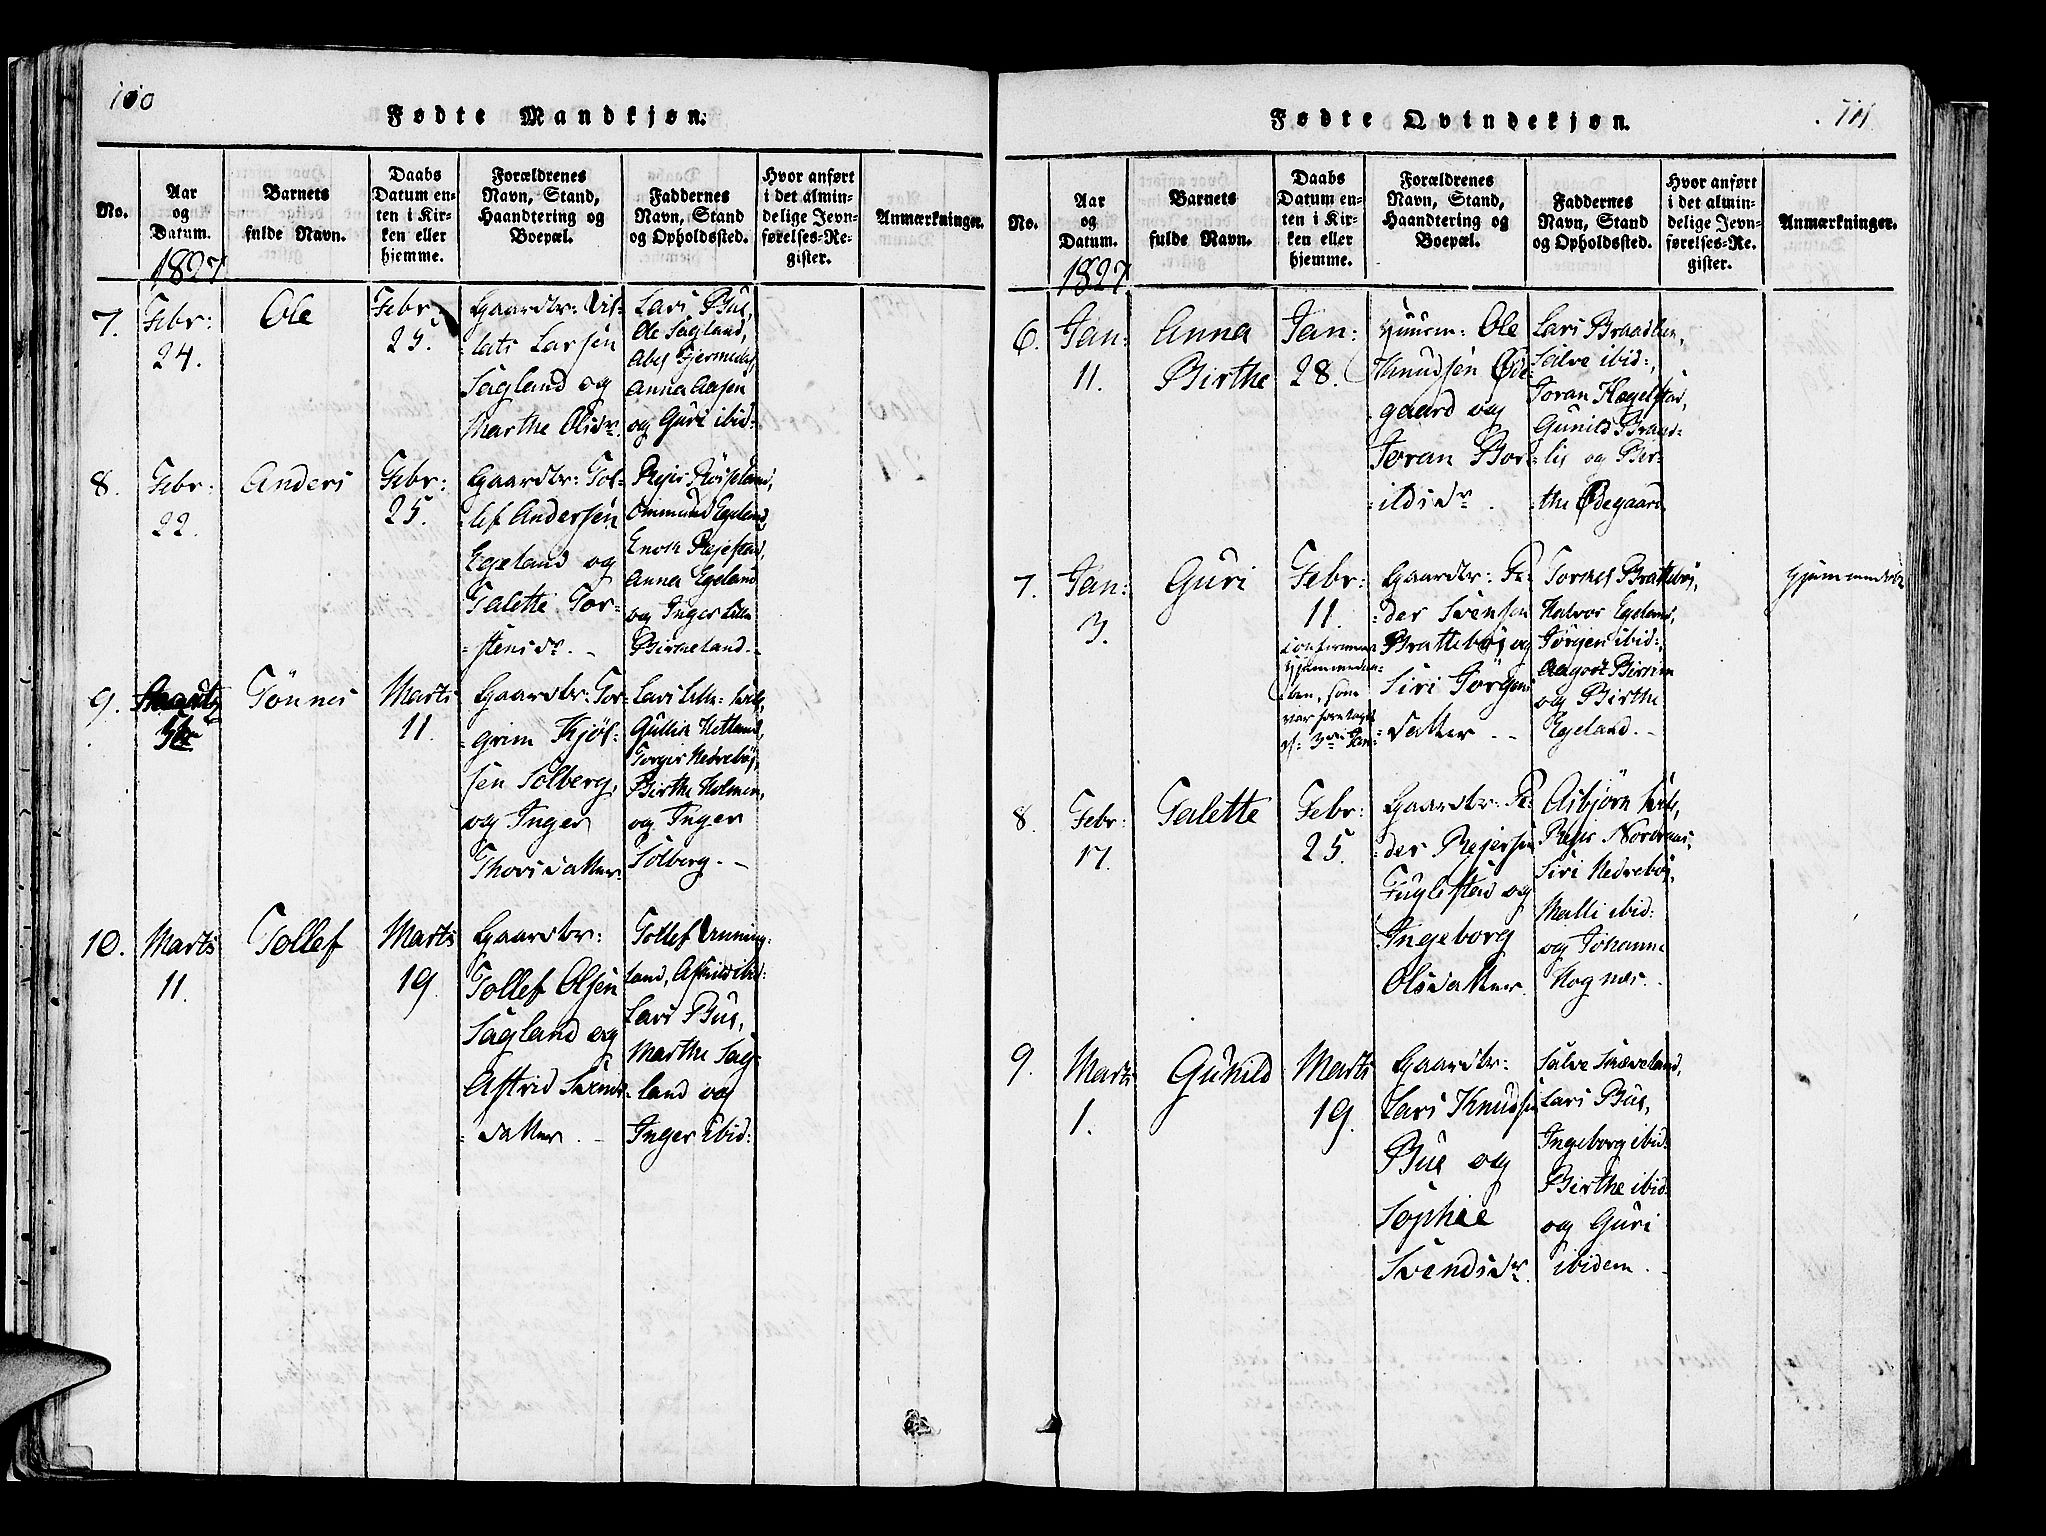 Fødte Mandkjøn.
No.
Aar
og
Datum.
1827
Barnets
fulde Navn.
Daabs
Datum en-
ten i Kir-
ken eller
hjemme.
Forældrenes
Navn, Stand,
Haandtering og
Boepæl.
Faddernes
Navn, Stand
og Opholdssted.
Hvor anført
i det almin-
delige Jevn-
førelses-Re-
gister.
Anmærkninger.
7.
Febr:
24.
Ole
Febr:
25.
Gaardbr:
Larsen
Sagland og
Marthe Olsdr.
Lars Bue,
Ole Sagland,
Anna Aasen
og Guri ibid:
8.
Febr:
22.
Anders
Febr:
25.
Gaardbr: Tol-
lef Andersen
Egeland og
Talette Tor-
stensdr. -
Ommund Egeland,
Enok Rejestad,
Anna Egeland
og Inger Lille
Birkeland. -
9.
Tønnes
Marts
11.
Gaardbr: Tor-
grim Kjøl-
sen Solberg,
og Inger
Thorsdatter
Gullik Hetland,
Torger Nedrebøe,
Birthe Holmen,
og Inger
Solberg. -
10.
Marts
11.
Tollef
Marts
19.
Gaardbr:
Tollef Olsen
Sagland og
Astrid Svends-
datter. -
Tollef
land, Astrid ibid:
Lars Bue,
Marthe Sag-
land og
Inger ibid:
Fødte Qvindekjøn.
No.
Aar
og
Datum.
1827
Barnets
fulde Navn.
Daabs
Datum en-
ten i Kir-
ken eller
hjemme.
Forældrenes
Navn, Stand,
Haandtering og
Boepæl.
Faddernes
Navn, Stand
og Opholdssted.
Hvor anført
i det almin-
delige Jevn-
førelses-Re-
gister.
Anmærkninger.
6.
Jan:
11.
Anna
Birthe
Jan:
28.
Huusm: Ole
Knudsen Øde-
gaard og
Joran Bor-
ildsdr.
Lars Braadlie,
Salve ibid:,
Joran Hegelstad,
Gunild Braad-
lie og Bir-
the Ødegaard
7.
Jan:
3.
Guri
Febr:
11.
hjemmedaa-
ben, som
var foretaget
Gaardbr: Pe-
der Svensen
Brattebøe og
Siri Jørgens-
datter. -
Tornes Brattebøe,
Halvor Egeland,
Jørgen ibid:,
Aagoth Birrim
og Birthe
Egeland. -
Hjemmedøbt
8.
Febr:
17.
Talette
Febr:
25.
Gaardbr: Pe-
der Rejersen
Fuglestad og
Ingeborg
Olsdatter.
Siri Nedrebøe,
Malli ibid:
og Johanne
9.
Marts
1.
Gunild
Marts
19.
Gaardbr:
Lars Knudsen
Bue og
Sophie
Svendsdr.
Lars Bue,
Ingeborg ibid:
Birthe ibid:
og Guri
ibidem. -